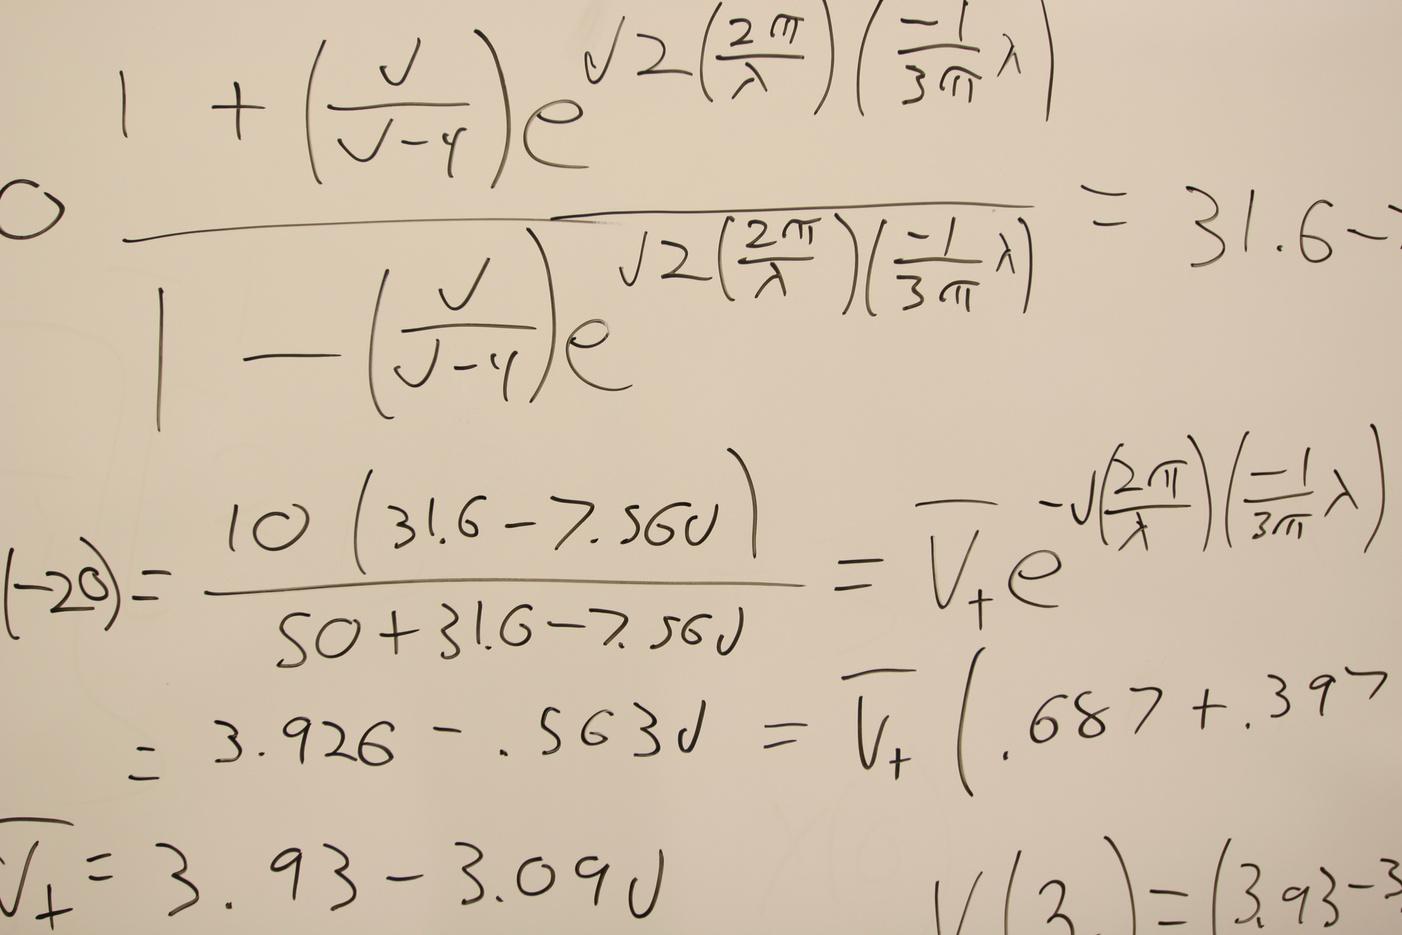 0 \frac{1 + (\frac{J}{J-4}) e^{J2(\frac{2π}{λ})(\frac{-1}{3π}λ)}}{1 - (\frac{J}{J-4}) e^{J2(\frac{2π}{λ})(\frac{-1}{3π}λ)}} = 31.6 -
(-20) = \frac{10 (31.6 - 7.56J)}{50 + 31.6 - 7.56J} = \overline{V}_+ e^{-J(\frac{2π}{λ})(\frac{-1}{3π}λ)}
= 3.926 - .563J = \overline{V}_+ (.687 + .397
\overline{V}_+ = 3.93 - 3.09J V( ) = (3.93 - 3